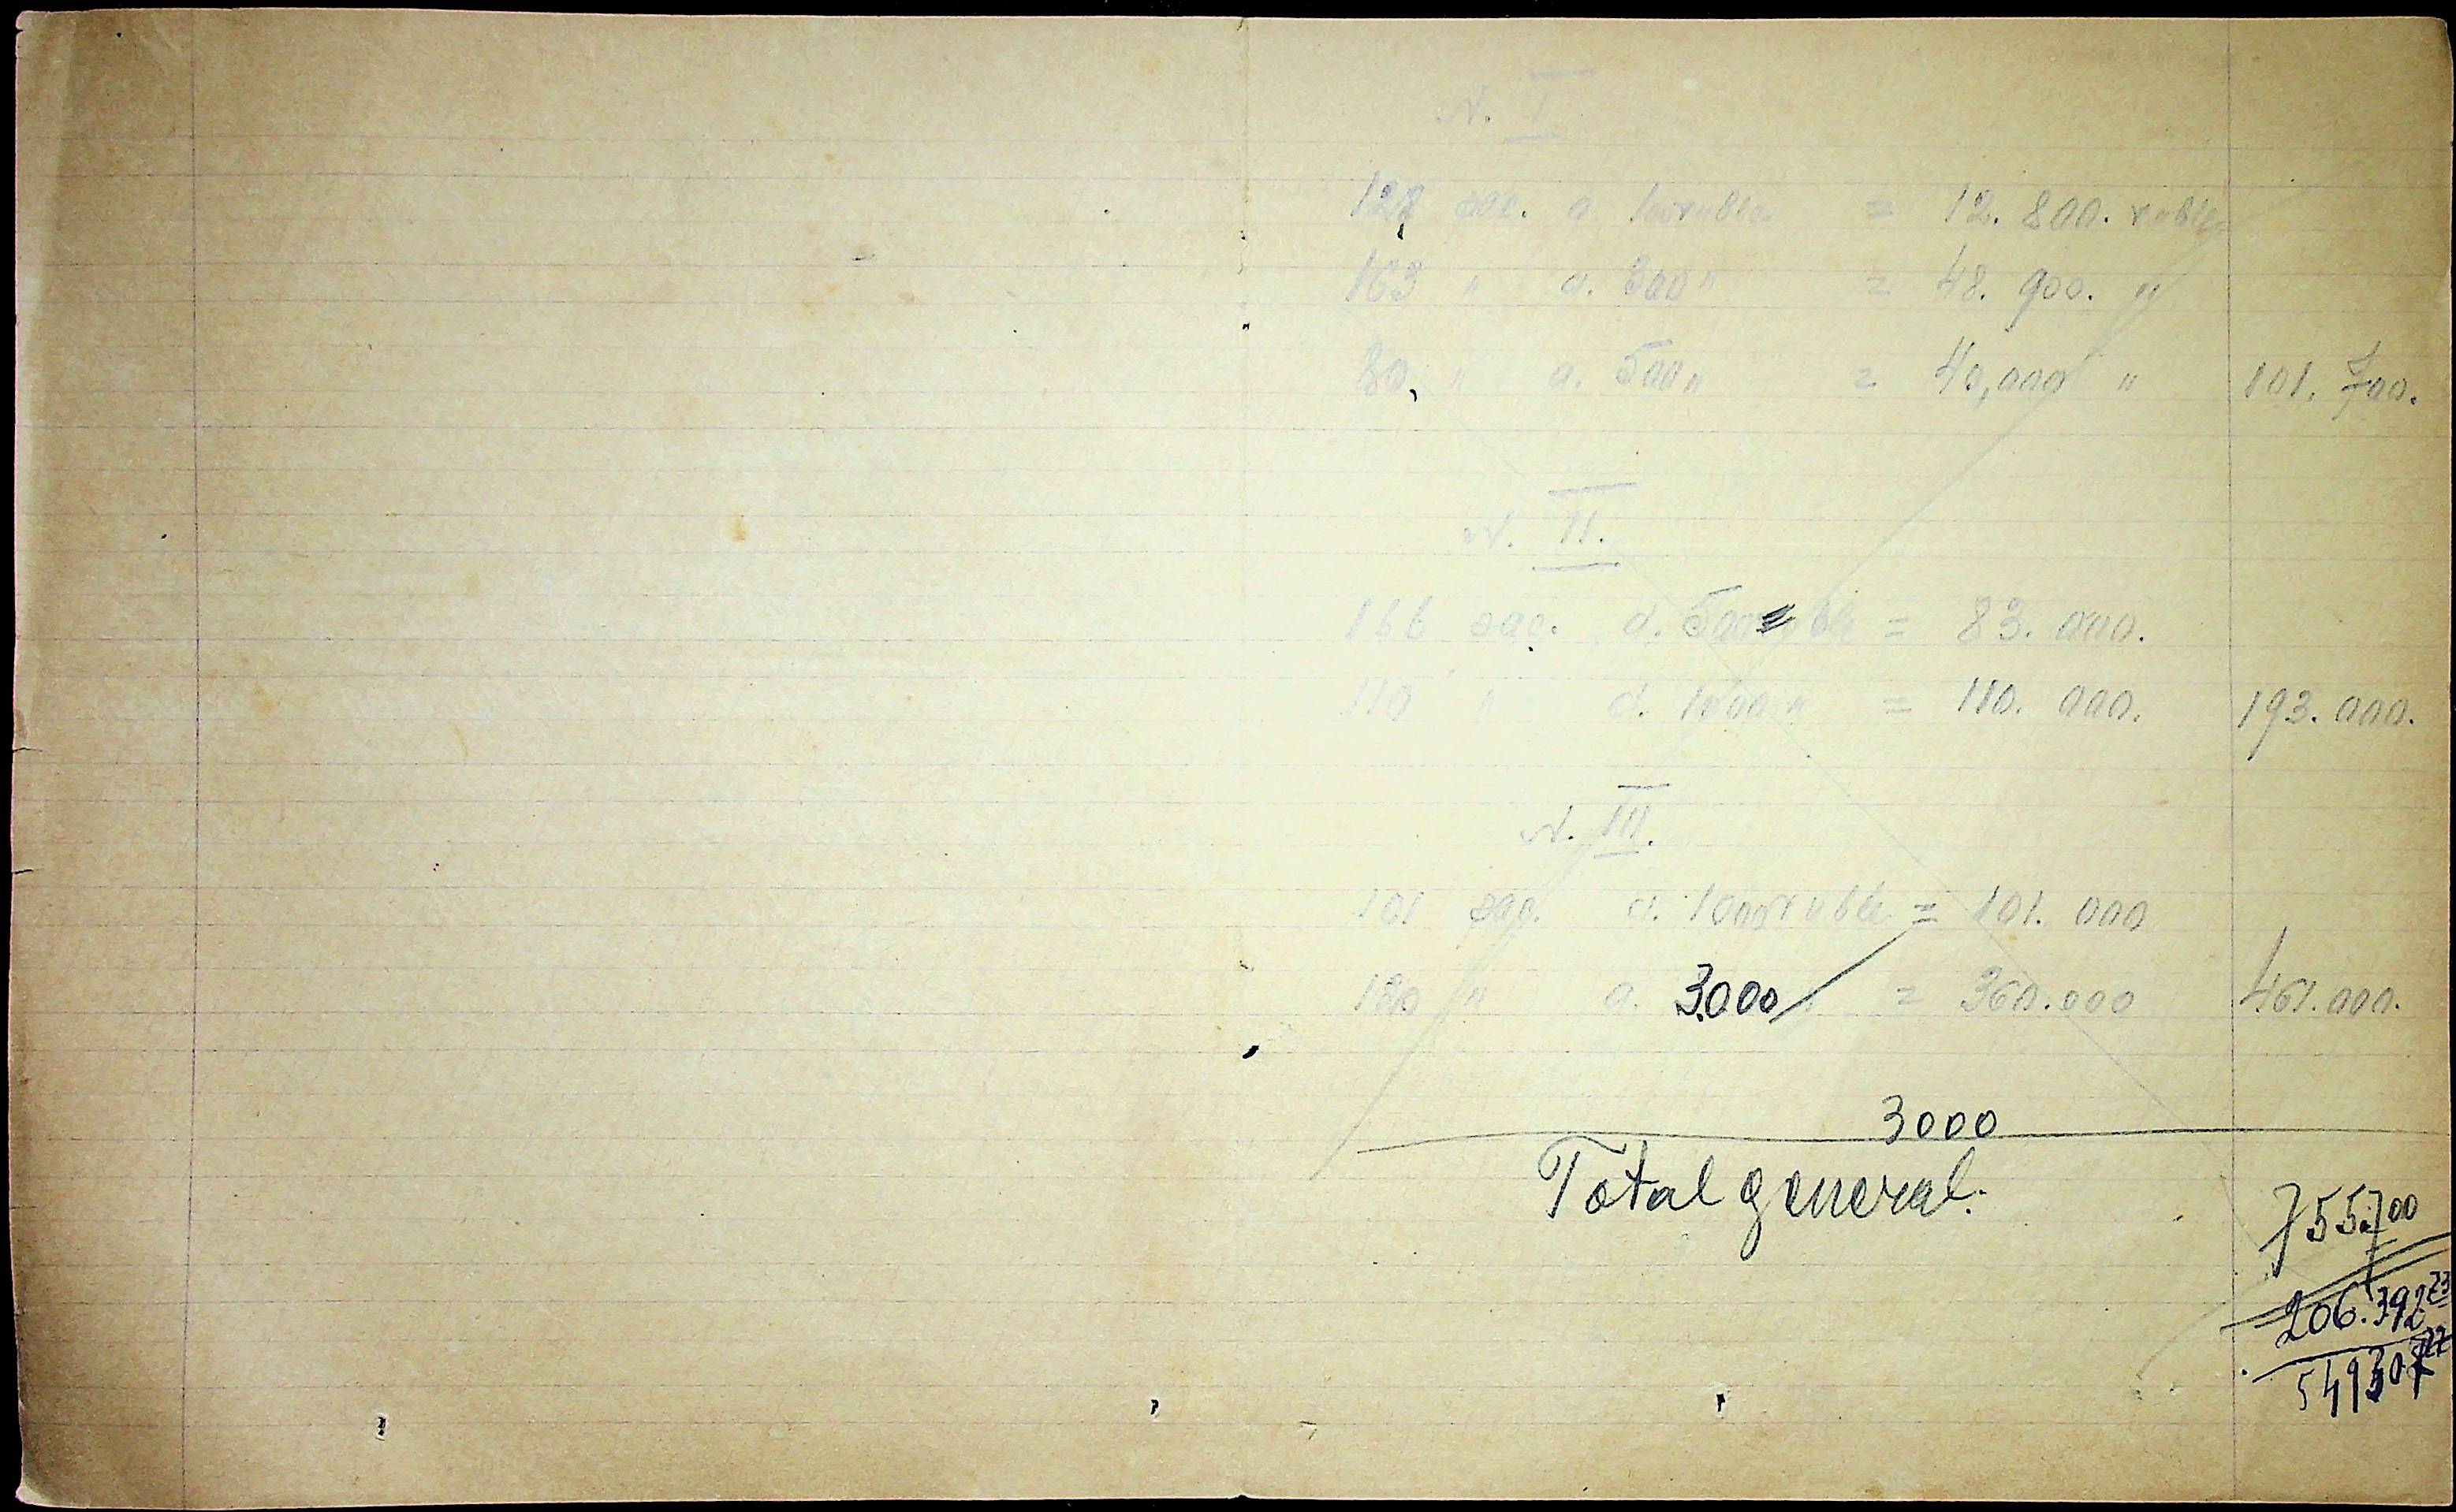 N. I
128 sac. a. 100 ruble = 12. 800. ruble
163 " a. 300 " = 48. 900. "
80. " a. 500 " = 40,000 " 101. 700.
N. II.
166 sac. a. 500 ruble = 83. 000.
110 " a. 1000 " = 110. 000. 193. 000.
N. III.
101 sac. a. 1000 ruble = 101. 000
120 " a. 3.000 = 360.000 461.000.
3000
Total general.
755.700
206.392 23
549307 27